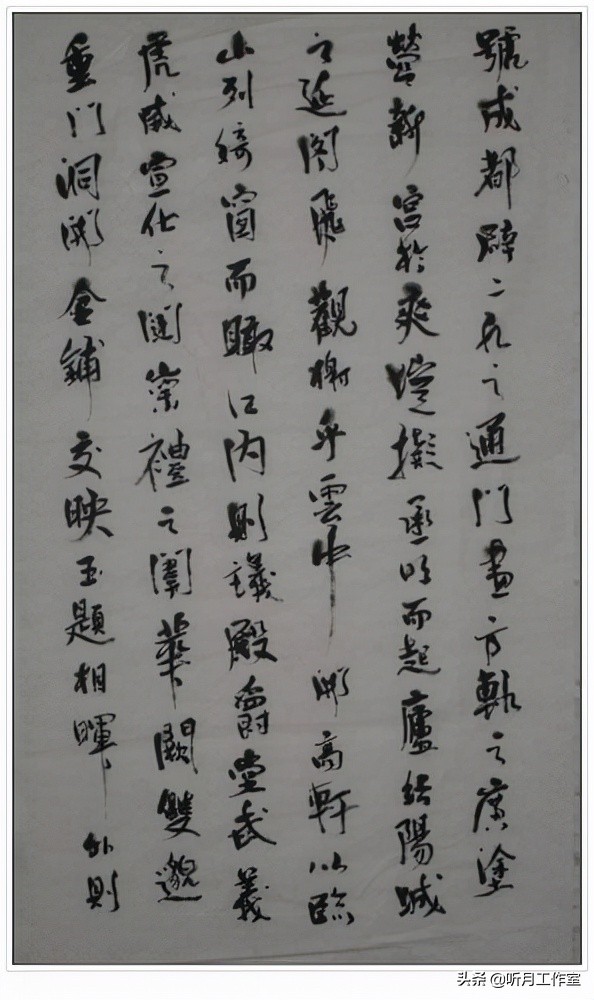 號成都辟二九之通門畫方軌之廣塗
營新宮於爽塏擬承明而起廬結陽城
之延閣飛觀榭乎雲中開高軒以臨
山列綺窗而瞰江內則議殿爵堂武義
虎威宣化之闥崇禮之闈華闕雙邈
重門洞開金鋪交映玉題相暉外則
头条 @听月工作室